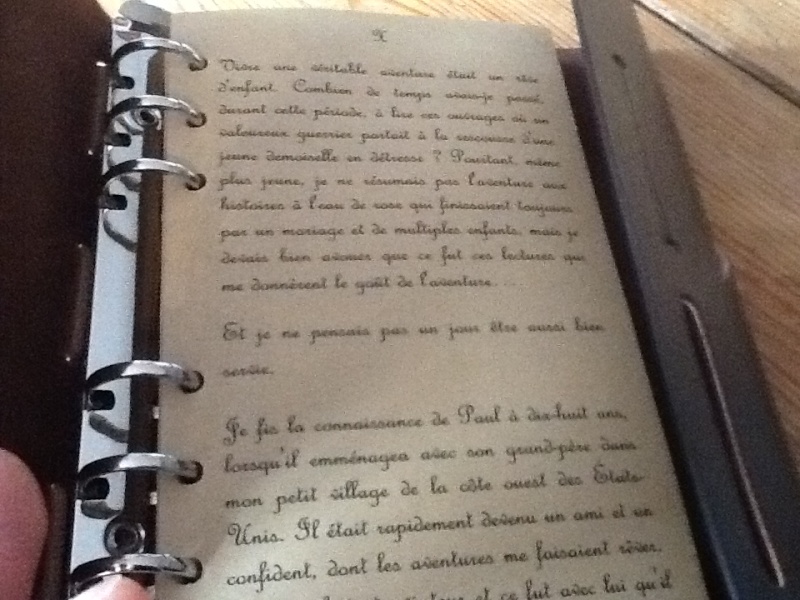 X
Vivre une véritable aventure était un rêve
d'enfant. Combien de temps avais-je passé,
durant cette période, à lire ces ouvrages où un
valeureux guerrier partait à la rescousse d'une
jeune demoiselle en détresse ? Pourtant, même
plus jeune, je ne résumais pas l'aventure aux
histoires à l'eau de rose qui finissaient toujours
par un mariage et de multiples enfants, mais je
devais bien avouer que ce fut ces lectures qui
me donnèrent le goût de l'aventure...
Et je ne pensais pas un jour être aussi bien
servie.
Je fis la connaissance de Paul à dix-huit ans,
lorsqu'il emménagea avec son grand-père dans
mon petit village de la côte ouest des États-
Unis. Il était rapidement devenu un ami et un
confident, dont les aventures me faisaient rêver.
et ce fut avec lui qu'il